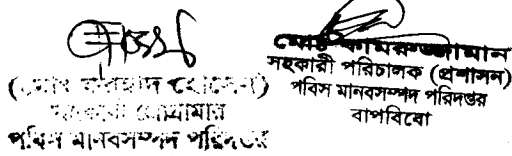 (মোঃ ফরহাদ হোসেন)
সহকারী প্রোগ্রামার
পবিস মানবসম্পদ পরিদপ্তর
মোঃ কামরুজ্জামান
সহকারী পরিচালক (প্রশাসন)
পবিস মানবসম্পদ পরিদপ্তর
বাপবিবো